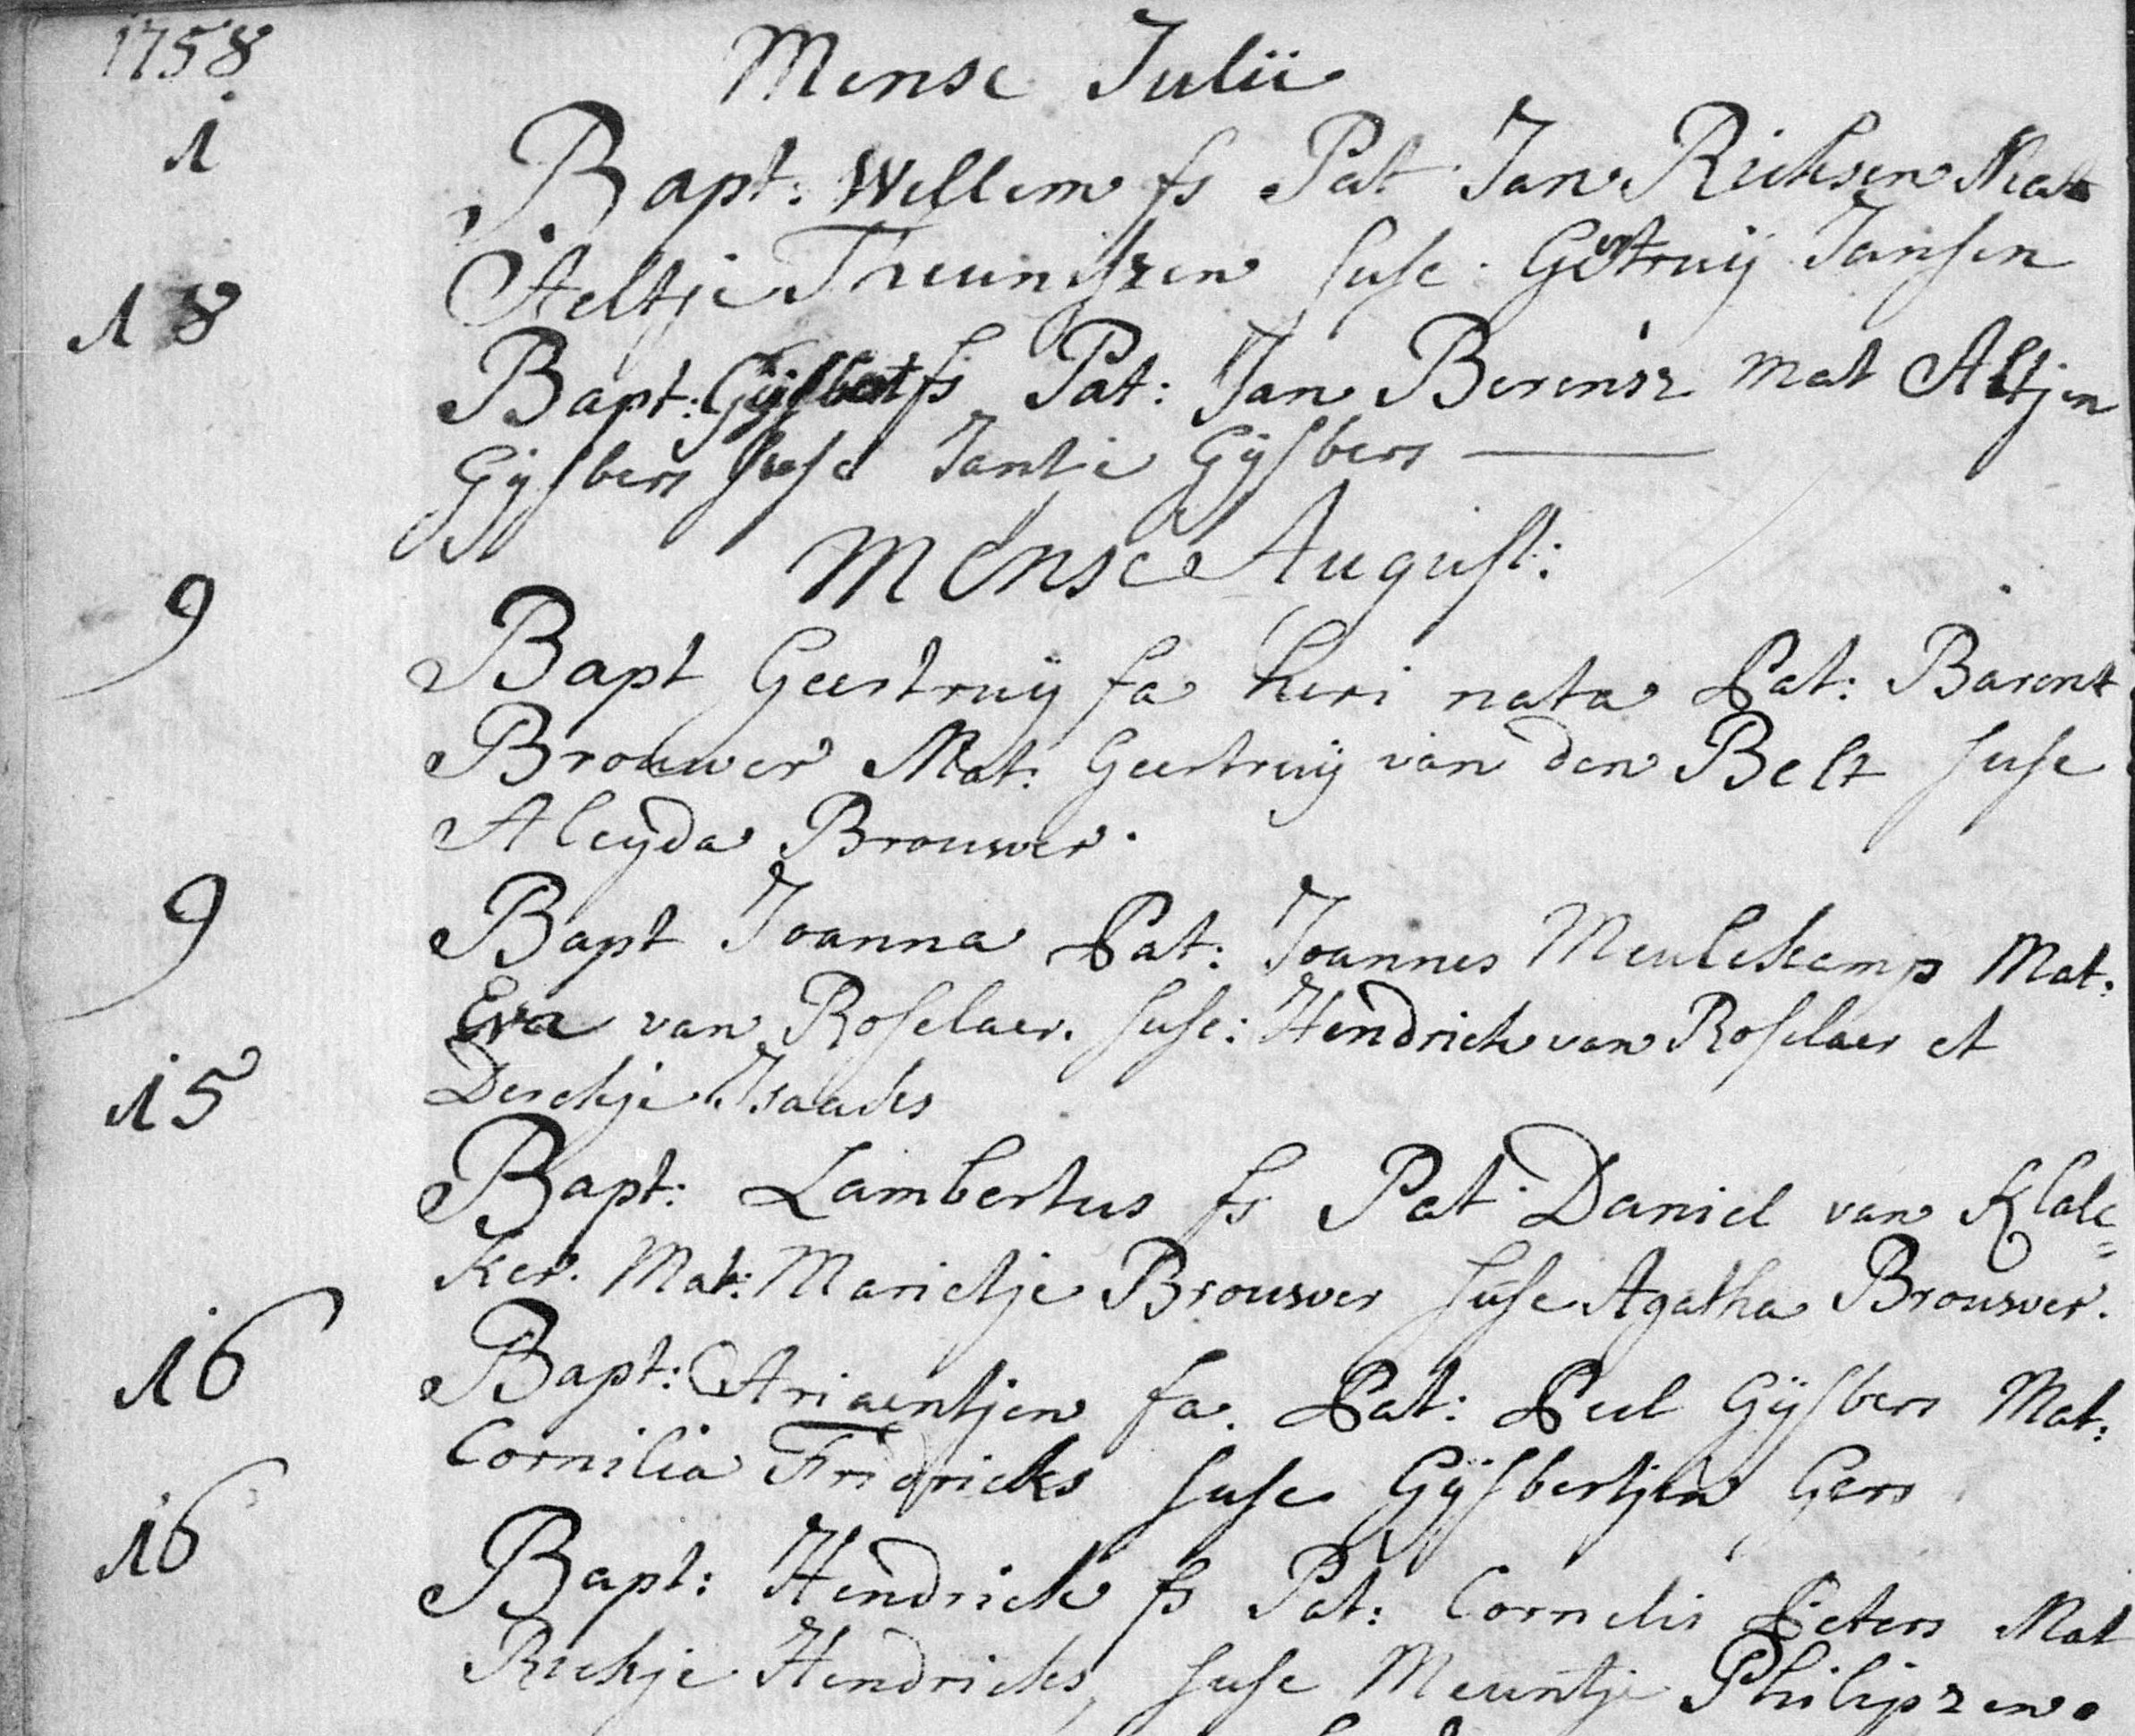 1758
Mense Julii
1 Bapt: Willem fs Pat Jan Ricksen Mat
Aeltje Theunissen susc. Gertruij Jansen
18 Bapt: Gijsbert fs Pat: Jan Berensz Mat Altjen
Gijsbers susc Jantje Gijsbers
Mense August:
9 Bapt Geertruij fa heri nata Pat: Barent
Brouwer Mat: Geertruij van den Belt susc
Aleyda Brouwer.
9 Bapt Joanna Pat: Joannes Meulekamp Mat:
Eva van Roselaer. susc: Hendrick van Roselaer et
Derckje Isaacks
15 Bapt: Lambertus fs Pat Daniel van Klale=
ker. Mat: Marietje Brouwer susc Agatha Brouwer.
16 Bapt: Ariaentjen fa. Pat: Peel Gijsbers Mat:
Cornilia Fridricks susc Gijsbertjen Gers
16 Bapt: Hendrick fs Pat: Cornelis Peters Mat
Rickje Hendricks, susc Meuntje Philipzen.